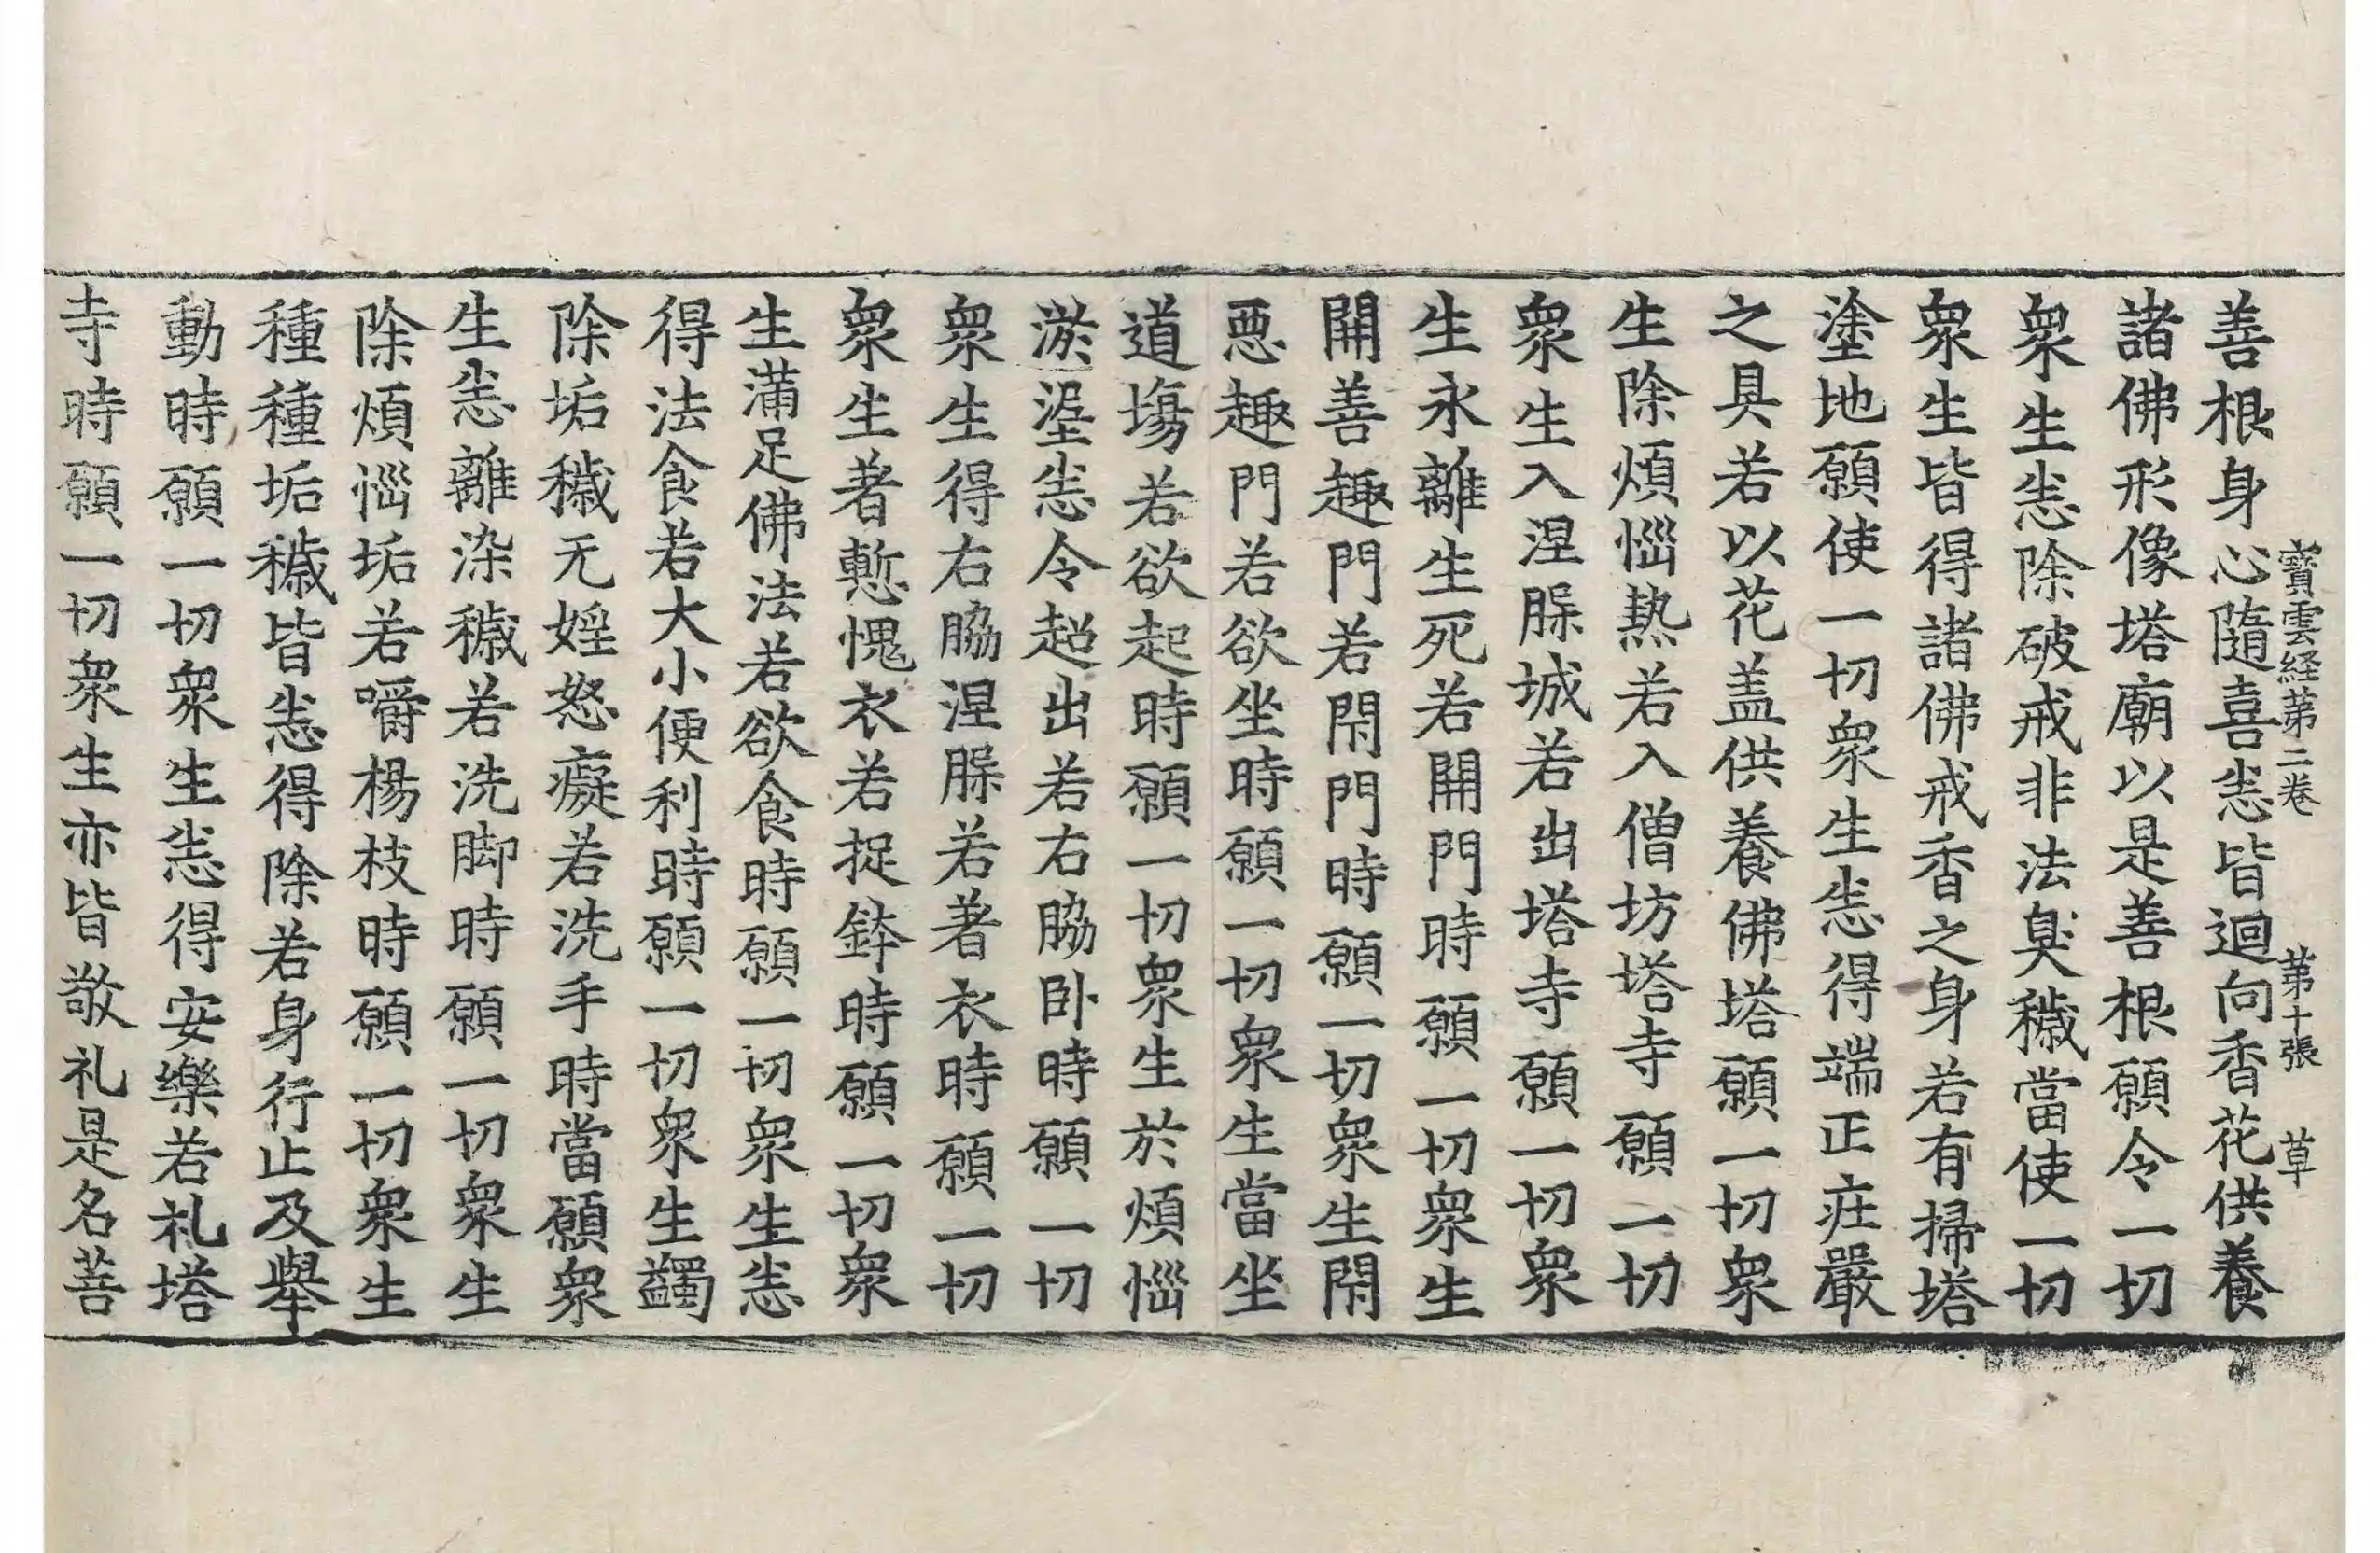 寶雲経苐二巻 苐十張 草
善根身心隨喜恙皆迴向香花供養
諸佛形像塔廟以是善根願令一切
衆生恙除破戒非法臭穢當使一切
衆生皆得諸佛戒香之身若有掃塔
塗地願使一切衆生恙得端正疘嚴
之具若以花盖供養佛塔願一切衆
生除煩惱熱若入僧坊塔寺願一切
衆生入涅脲城若出塔寺願一切衆
生永離生死若開門時願一切衆生
開善趣門若閇門時願一切衆生閇
惡趣門若欲坐時願一切衆生當坐
道塲若欲起時願一切衆生於煩惱
淤埿恙令超出若右脇卧時願一切
衆生得右脇涅脲若著衣時願一切
衆生著慙愧衣若捉鉢時願一切衆
生滿足佛法若欲食時願一切衆生恙
得法食若大小便利時願一切衆生蠲
除垢穢无婬怒癡若洗手時當願衆
生恙離染穢若洗脚時願一切衆生
除煩惱垢若嚼楊枝時願一切衆生
種種垢穢皆恙得除若身行止及舉
動時願一切衆生恙得安樂若礼塔
寺時願一切衆生亦皆敬礼是名菩